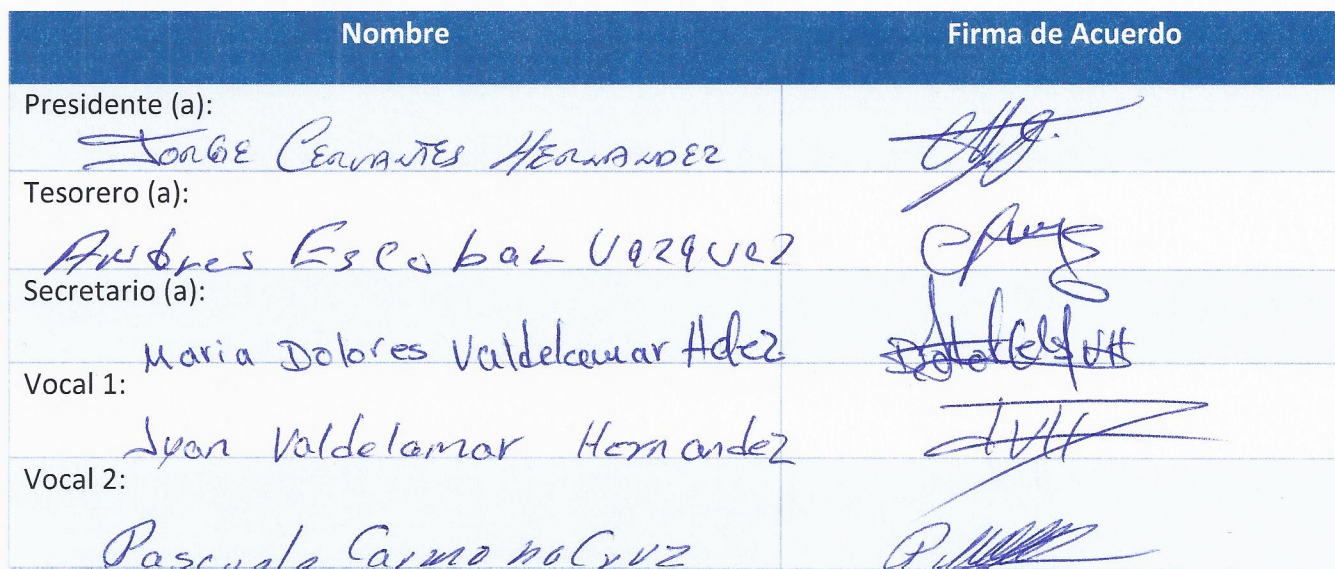 Nombre Firma de Acuerdo
Presidente (a):
JORGE CERVANTES HERNANDEZ
Tesorero (a):
Andres Escobar Vazquez
Secretario (a):
Maria Dolores Valdelamar Hdez
Vocal 1:
Juan Valdelamar Hernandez JVH
Vocal 2:
Pascuala Carmona Cruz